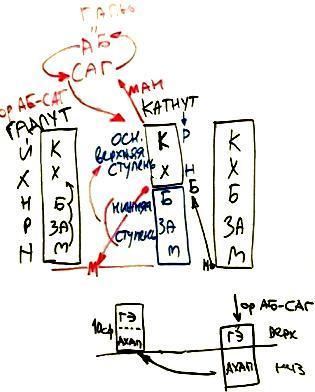 ГАЛЬГ
АБ
САГ
ор АБ-САГ
МАН
ГАДЛУТ
КАТНУТ
Й
Х
Н
Р
Н
К
Х
Б
ЗА
М
ОСН.
ВЕРХНЯЯ
СТУПЕНЬ
НИЖНЯЯ
СТУПЕНЬ
М
К
Х
Б
ЗА
М
Р
Н
Б
К
Х
Б
ЗА
М
10сф
ГЭ
АХАП
ор АБ-САГ
ГЭ
АХАП
ВЕРХ
НИЗ